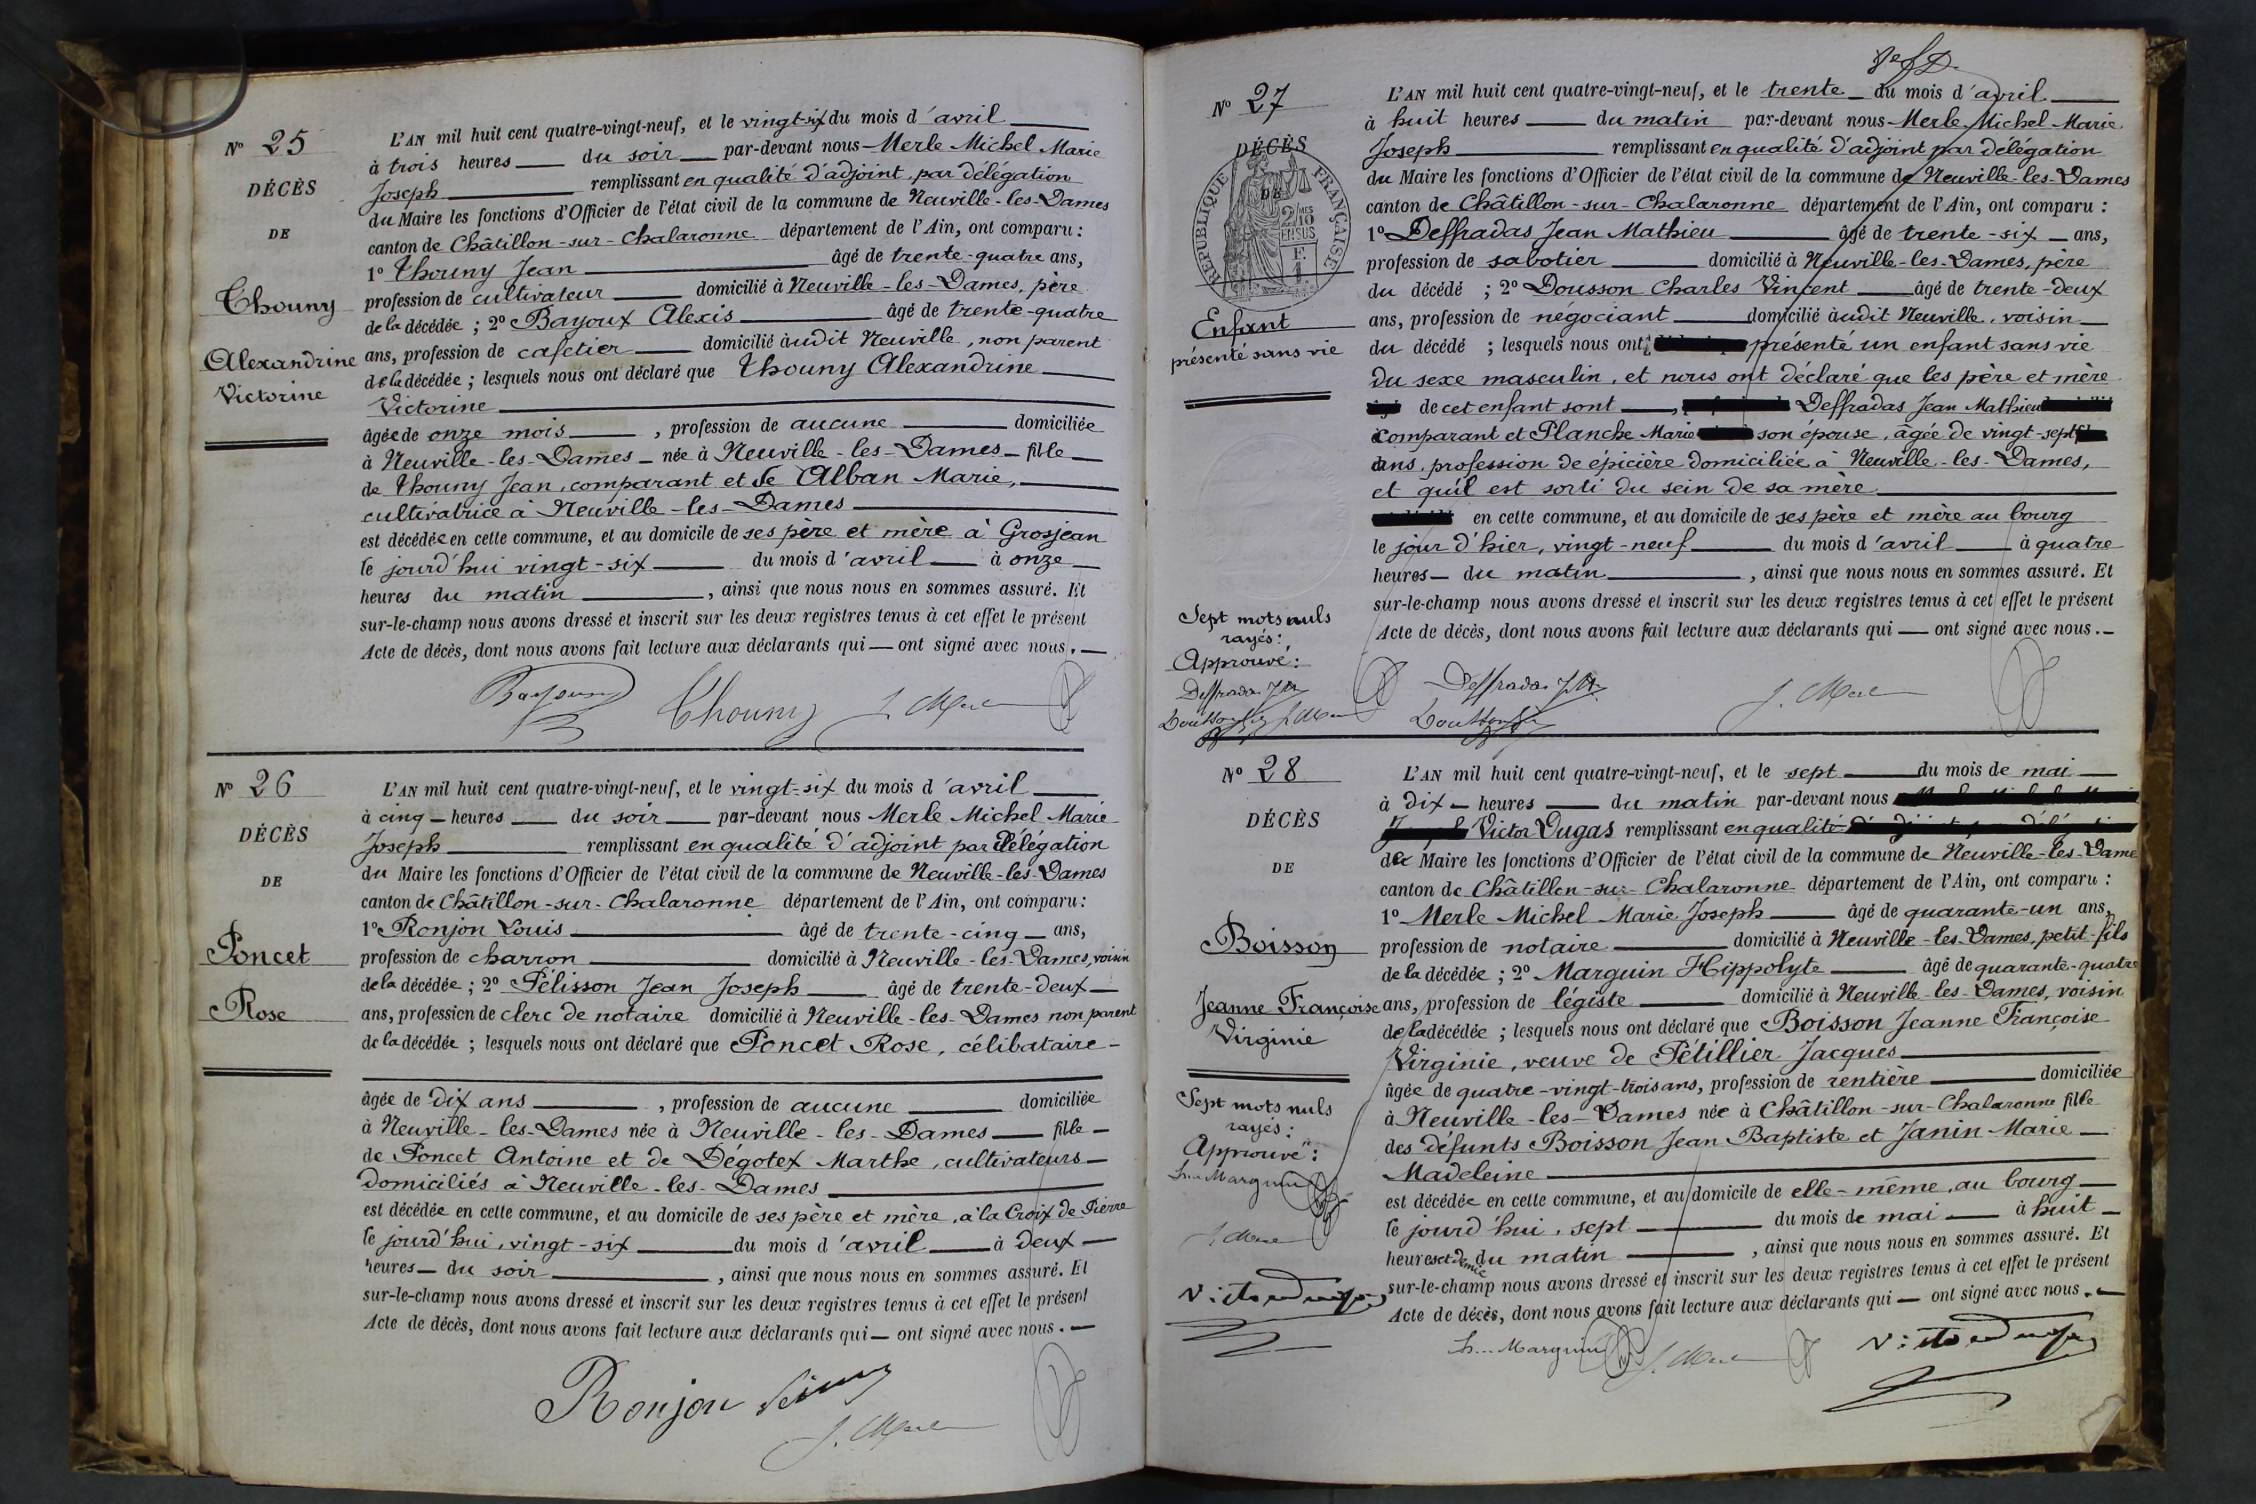 N° 25
DÉCÈS
DE
Thouny
Alexandrine
Victorine
L'AN mil huit cent quatre-vingt-neuf, et le vingt-six du mois d'avril
à trois heures du soir par-devant nous Merle Michel Marie
Joseph remplissant en qualité d'adjoint, par délégation
du Maire les fonctions d'Officier de l'état civil de la commune de Neuville-les-Dames
canton de Châtillon-sur-Chalaronne département de l'Ain, ont comparu :
1° Thouny Jean âgé de trente-quatre ans,
profession de cultivateur domicilié à Neuville-les-Dames, père
de la décédée ; 2° Bayoux Alexis âgé de trente-quatre
ans, profession de cafetier domicilié audit Neuville, non parent
de la décédée ; lesquels nous ont déclaré que Thouny Alexandrine
Victorine
âgée de onze mois, profession de aucune domiciliée
à Neuville-les-Dames née à Neuville-les-Dames fille
de Thouny Jean, comparant et de Alban Marie,
cultivatrice à Neuville-les-Dames
est décédée en cette commune, et au domicile de ses père et mère à Grosjean
le jourd'hui vingt-six du mois d'avril à onze
heures du matin, ainsi que nous nous en sommes assuré. Et
sur-le-champ nous avons dressé et inscrit sur les deux registres tenus à cet effet le présent
Acte de décès, dont nous avons fait lecture aux déclarants qui ont signé avec nous.
Thouny J. Merle
N° 26
DÉCÈS
DE
Poncet
Rose
L'AN mil huit cent quatre-vingt-neuf, et le vingt-six du mois d'avril
à cinq heures du soir par-devant nous Merle Michel Marie
Joseph remplissant en qualité d'adjoint par délégation
du Maire les fonctions d'Officier de l'état civil de la commune de Neuville-les-Dames
canton de Châtillon-sur-Chalaronne département de l'Ain, ont comparu :
1° Ronjon Louis âgé de trente-cinq ans,
profession de charron domicilié à Neuville-les-Dames, voisin
de la décédée ; 2° Pélisson Jean Joseph âgé de trente-deux
ans, profession de clerc de notaire domicilié à Neuville-les-Dames non parent
de la décédée ; lesquels nous ont déclaré que Poncet Rose, célibataire
âgée de dix ans, profession de aucune domiciliée
à Neuville-les-Dames née à Neuville-les-Dames fille
de Poncet Antoine et de Dégotex Marthe, cultivateurs
domiciliés à Neuville-les-Dames
est décédée en cette commune, et au domicile de ses père et mère, à la Croix de Pierre
le jourd'hui, vingt-six du mois d'avril à deux
heures du soir, ainsi que nous nous en sommes assuré. Et
sur-le-champ nous avons dressé et inscrit sur les deux registres tenus à cet effet le présent
Acte de décès, dont nous avons fait lecture aux déclarants qui ont signé avec nous.
Ronjon
J. Merle
N° 27
DÉCÈS
DE
RÉPUBLIQUE FRANÇAISE
2/10 MES
EN SUS
F.
1
Enfant
présenté sans vie
L'AN mil huit cent quatre-vingt-neuf, et le trente du mois d'avril
à huit heures du matin par-devant nous Merle Michel Marie
Joseph remplissant en qualité d'adjoint par délégation
du Maire les fonctions d'Officier de l'état civil de la commune de Neuville-les-Dames
canton de Châtillon-sur-Chalaronne département de l'Ain, ont comparu :
1° Deffradas Jean Mathieu âgé de trente-six ans,
profession de sabotier domicilié à Neuville-les-Dames, père
du décédé ; 2° Dousson Charles Vincent âgé de trente-deux
ans, profession de négociant domicilié audit Neuville, voisin
du décédé ; lesquels nous ont présenté un enfant sans vie
du sexe masculin, et nous ont déclaré que les père et mère
de cet enfant sont, Deffradas Jean Mathieu
comparant et Planche Marie son épouse, âgée de vingt-sept
ans, profession de épicière domiciliée à Neuville-les-Dames,
et qu'il est sorti du sein de sa mère
en cette commune, et au domicile de ses père et mère au bourg
le jour d'hier, vingt-neuf du mois d'avril à quatre
heures du matin, ainsi que nous nous en sommes assuré. Et
sur-le-champ nous avons dressé et inscrit sur les deux registres tenus à cet effet le présent
Acte de décès, dont nous avons fait lecture aux déclarants qui ont signé avec nous.
Sept mots nuls
rayés :
Approuvé :
Deffradas J M
J. Merle
Deffradas J M
J. Merle
N° 28
DÉCÈS
DE
Boisson
Jeanne Françoise
Virginie
L'AN mil huit cent quatre-vingt-neuf, et le sept du mois de mai
à dix heures du matin par-devant nous
Victor Dugas remplissant en qualité
de Maire les fonctions d'Officier de l'état civil de la commune de Neuville-les-Dame
canton de Châtillon-sur-Chalaronne département de l'Ain, ont comparu :
1° Merle Michel Marie Joseph âgé de quarante-un ans,
profession de notaire domicilié à Neuville-les-Dames, petit-fils
de la décédée ; 2° Marguin Hippolyte âgé de quarante-quatre
ans, profession de légiste domicilié à Neuville-les-Dames, voisin
de la décédée ; lesquels nous ont déclaré que Boisson Jeanne Françoise
Virginie, veuve de Pétillier Jacques
âgée de quatre-vingt-trois ans, profession de rentière domiciliée
à Neuville-les-Dames née à Châtillon-sur-Chalaronne fille
des défunts Boisson Jean Baptiste et Janin Marie
Madeleine
est décédée en cette commune, et au domicile de elle-même, au bourg
le jourd'hui, sept du mois de mai à huit
heures et demie du matin, ainsi que nous nous en sommes assuré. Et
sur-le-champ nous avons dressé et inscrit sur les deux registres tenus à cet effet le présent
Acte de décès, dont nous avons fait lecture aux déclarants qui ont signé avec nous.
Sept mots nuls
rayés :
Approuvé :
h. Marguin
J. Merle
Victor Dugas
h. Marguin J. Merle Victor Dugas